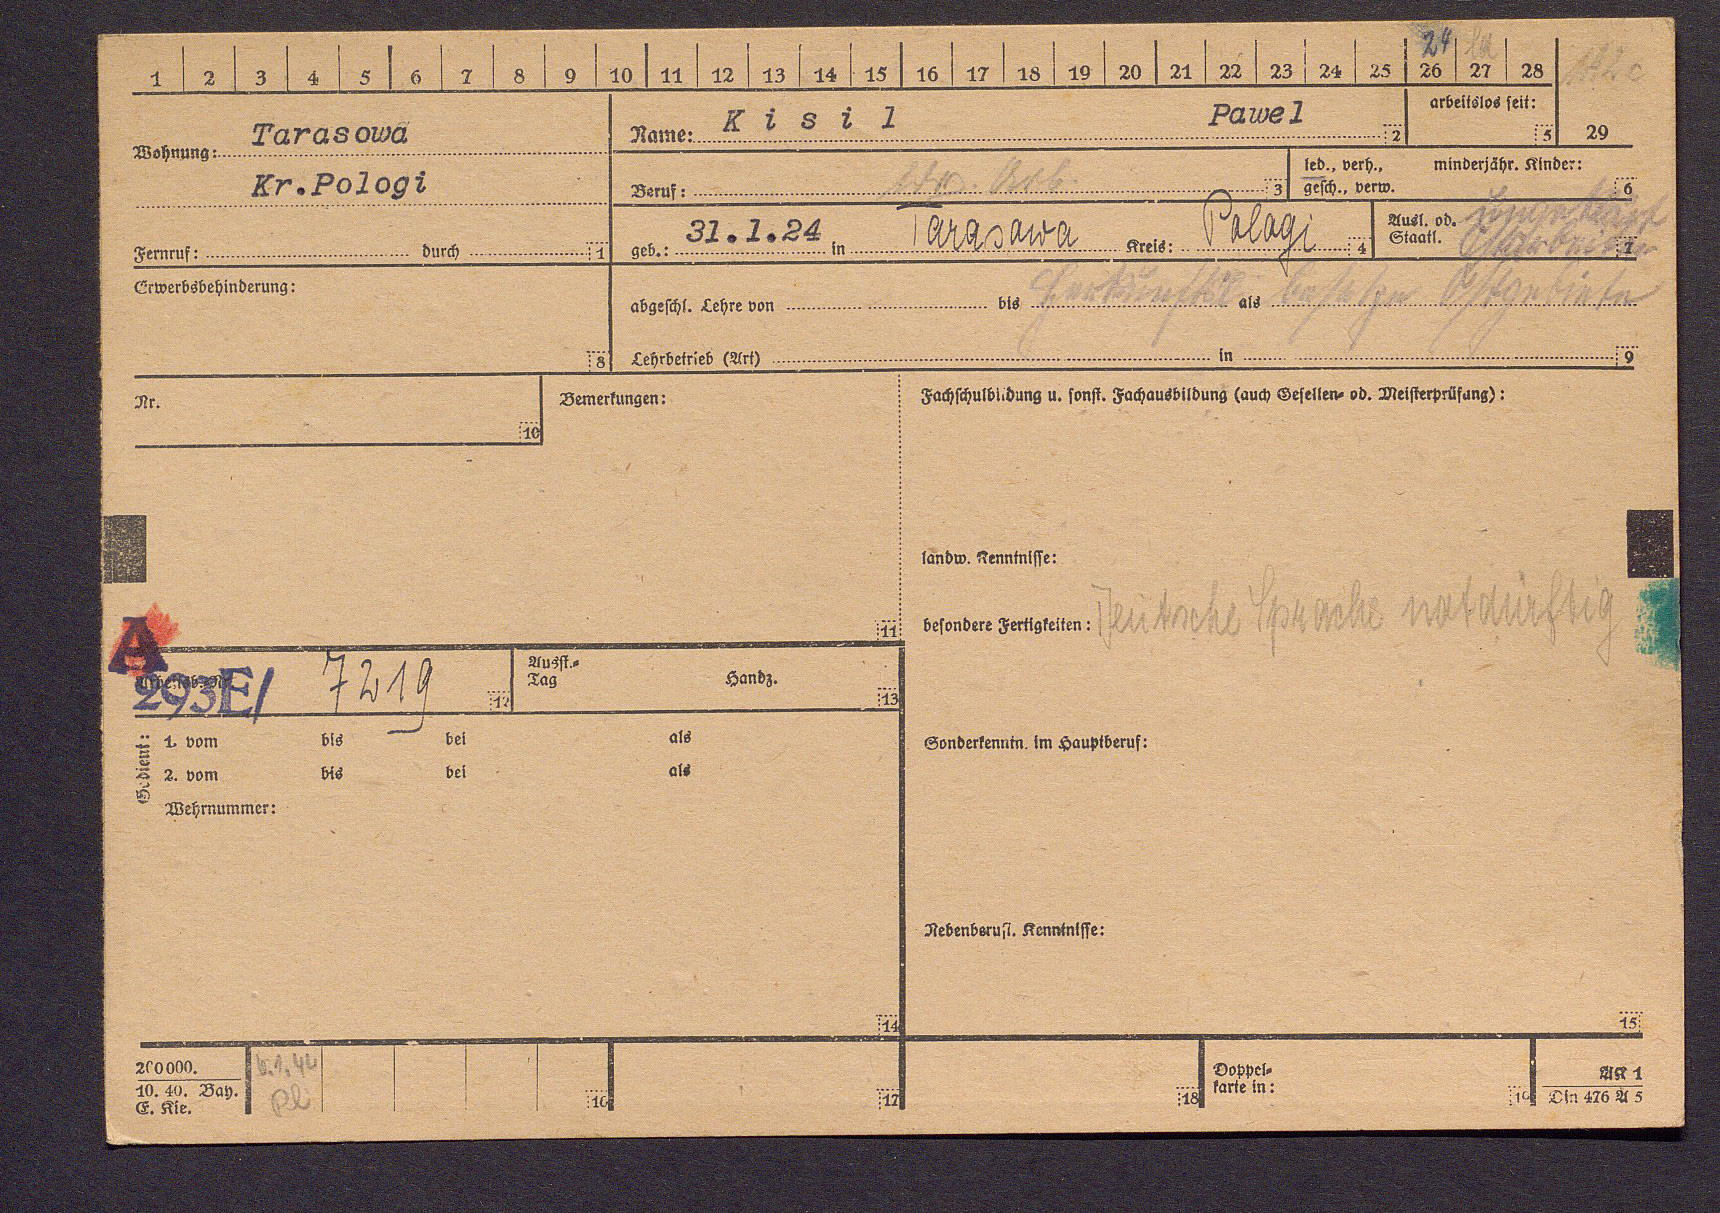 1 2 3 4 5 6 7 8 9 10 11 12 13 14 15 16 17 18 19 20 21 22 23 24 25 26 27 28
24
Wohnung: Tarasowa
Kr.Pologi
Fernruf: durch 1
Name: Kisil Pawel 2
arbeitslos seit: 5
29
Beruf: Arb. 3
led., verh., gesch., verw.
minderjähr. Kinder: 6
geb.: 31.1.24 in Tarasowa Kreis: Pologi 4
Ausl. od. Staatl. 7
Erwerbsbehinderung: 8
abgeschl. Lehre von bis als
besetzte Ostgebiete
Lehrbetrieb (Art) in 9
Nr. 10
Bemerkungen: 11
Fachschulbildung u. sonst. Fachausbildung (auch Gesellen- od. Meisterprüfung):
landw. Kenntnisse:
besondere Fertigkeiten: Deutsche Sprache notdürftig
A
293E/ 7219 12
Ausst.-Tag Handz. 13
Gedient:
1. vom bis bei als
2. vom bis bei als
Wehrnummer:
14
Sonderkenntn. im Hauptberuf:
Nebenberufl. Kenntnisse:
15
200000.
10. 40. Bay.
E. Kie.
16
17
18
Doppel-
karte in: 19
AK 1
Din 476 A 5